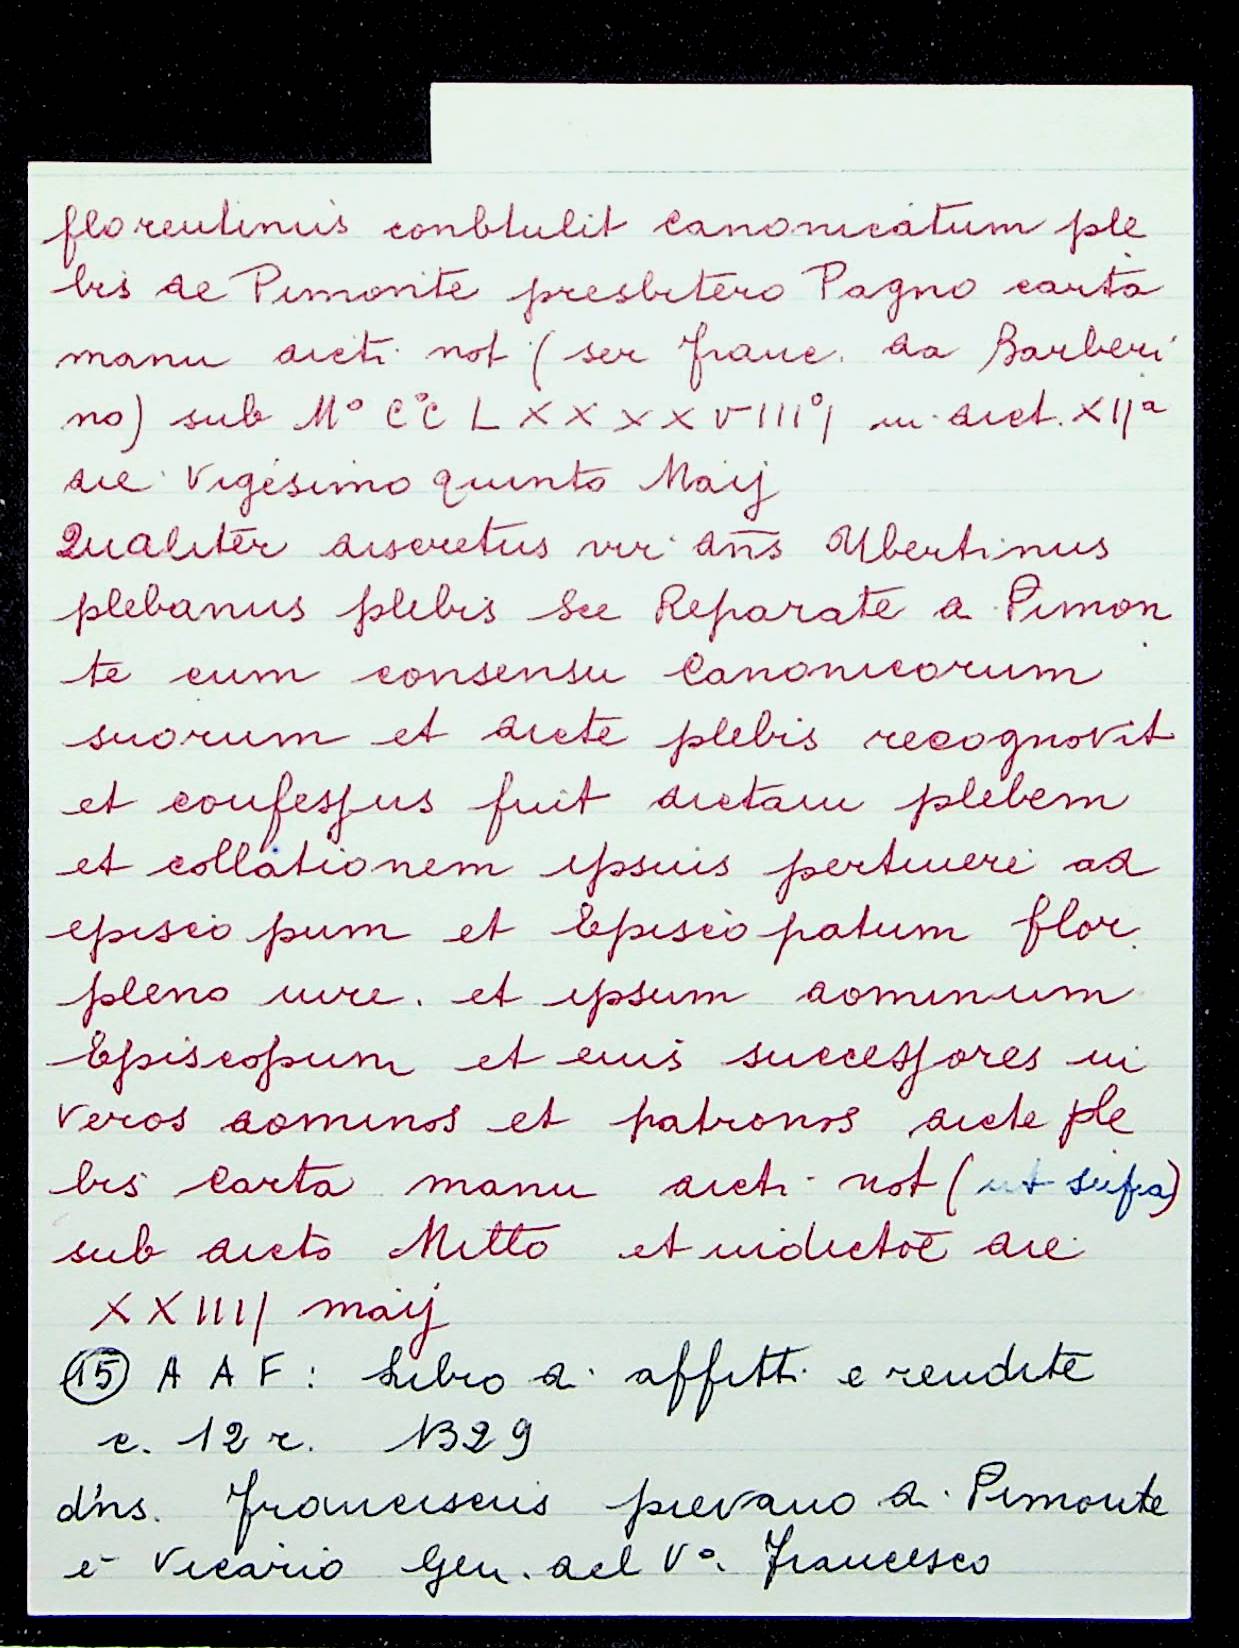 florentinus conbtulit canonicatum ple
bis de Pimonte presbitero Pagno carta
manu dicti not (ser franc. da Barberi
no) sub M° CC° L X X X X V IIII°/ in dict. XIIª
die Vigesimo quinto Maij
Qualiter discretus vir dn̄s Ubertinus
plebanus plebis Sce Reparate a Pimon
te cum consensu Canonicorum
suorum et dicte plebis recognovit
et confessus fuit dictam plebem
et collationem ipsius pertinere ad
episcopum et Episcopatum flor.
pleno iure. et ipsum dominum
Episcopum et eius successores in
veros dominos et patronos dicte ple
bis Carta manu dicti not (ut supra)
sub dicto Mill̄o et indictōe die
XXIIII/ maij
(15) A A F: Libro di affitti e rendite
c. 12 r. 1329
d'ns. Franciscus pievano di Pimonte
è Vicario Gen. del V°. Francesco